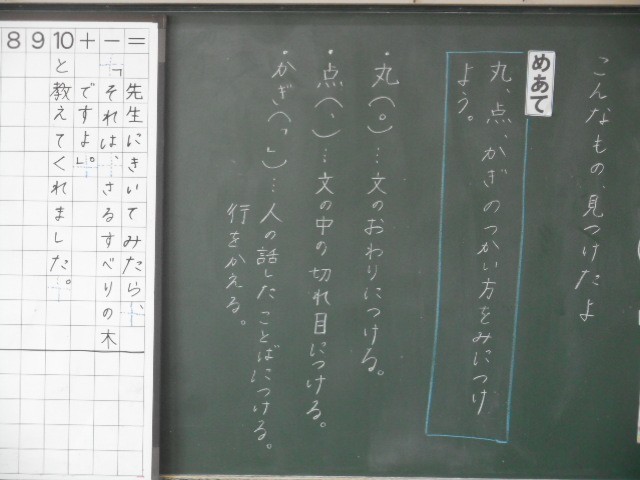 こんなもの、見つけたよ
めあて
丸、点、かぎのつかい方をみにつけ
よう。
・丸(。)…文のおわりにつける。
・点(、)…文の中の切れ目につける。
・かぎ(「」)…人の話したことばにつける。
行をかえる。
二
一
十
10
9
8
先生にきいてみたら、
「それは、さるすべりの木
ですよ。」
と教えてくれました。